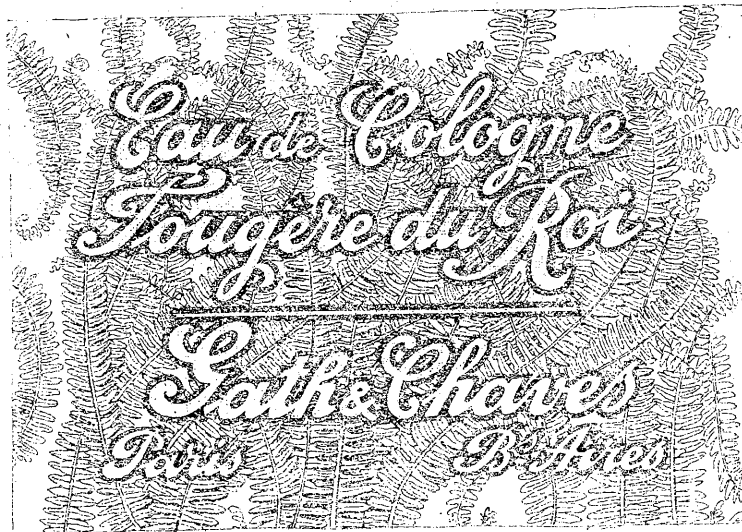 Eau de Cologne
Fougère du Roi
Gath & Chaves
Paris Bs Aires